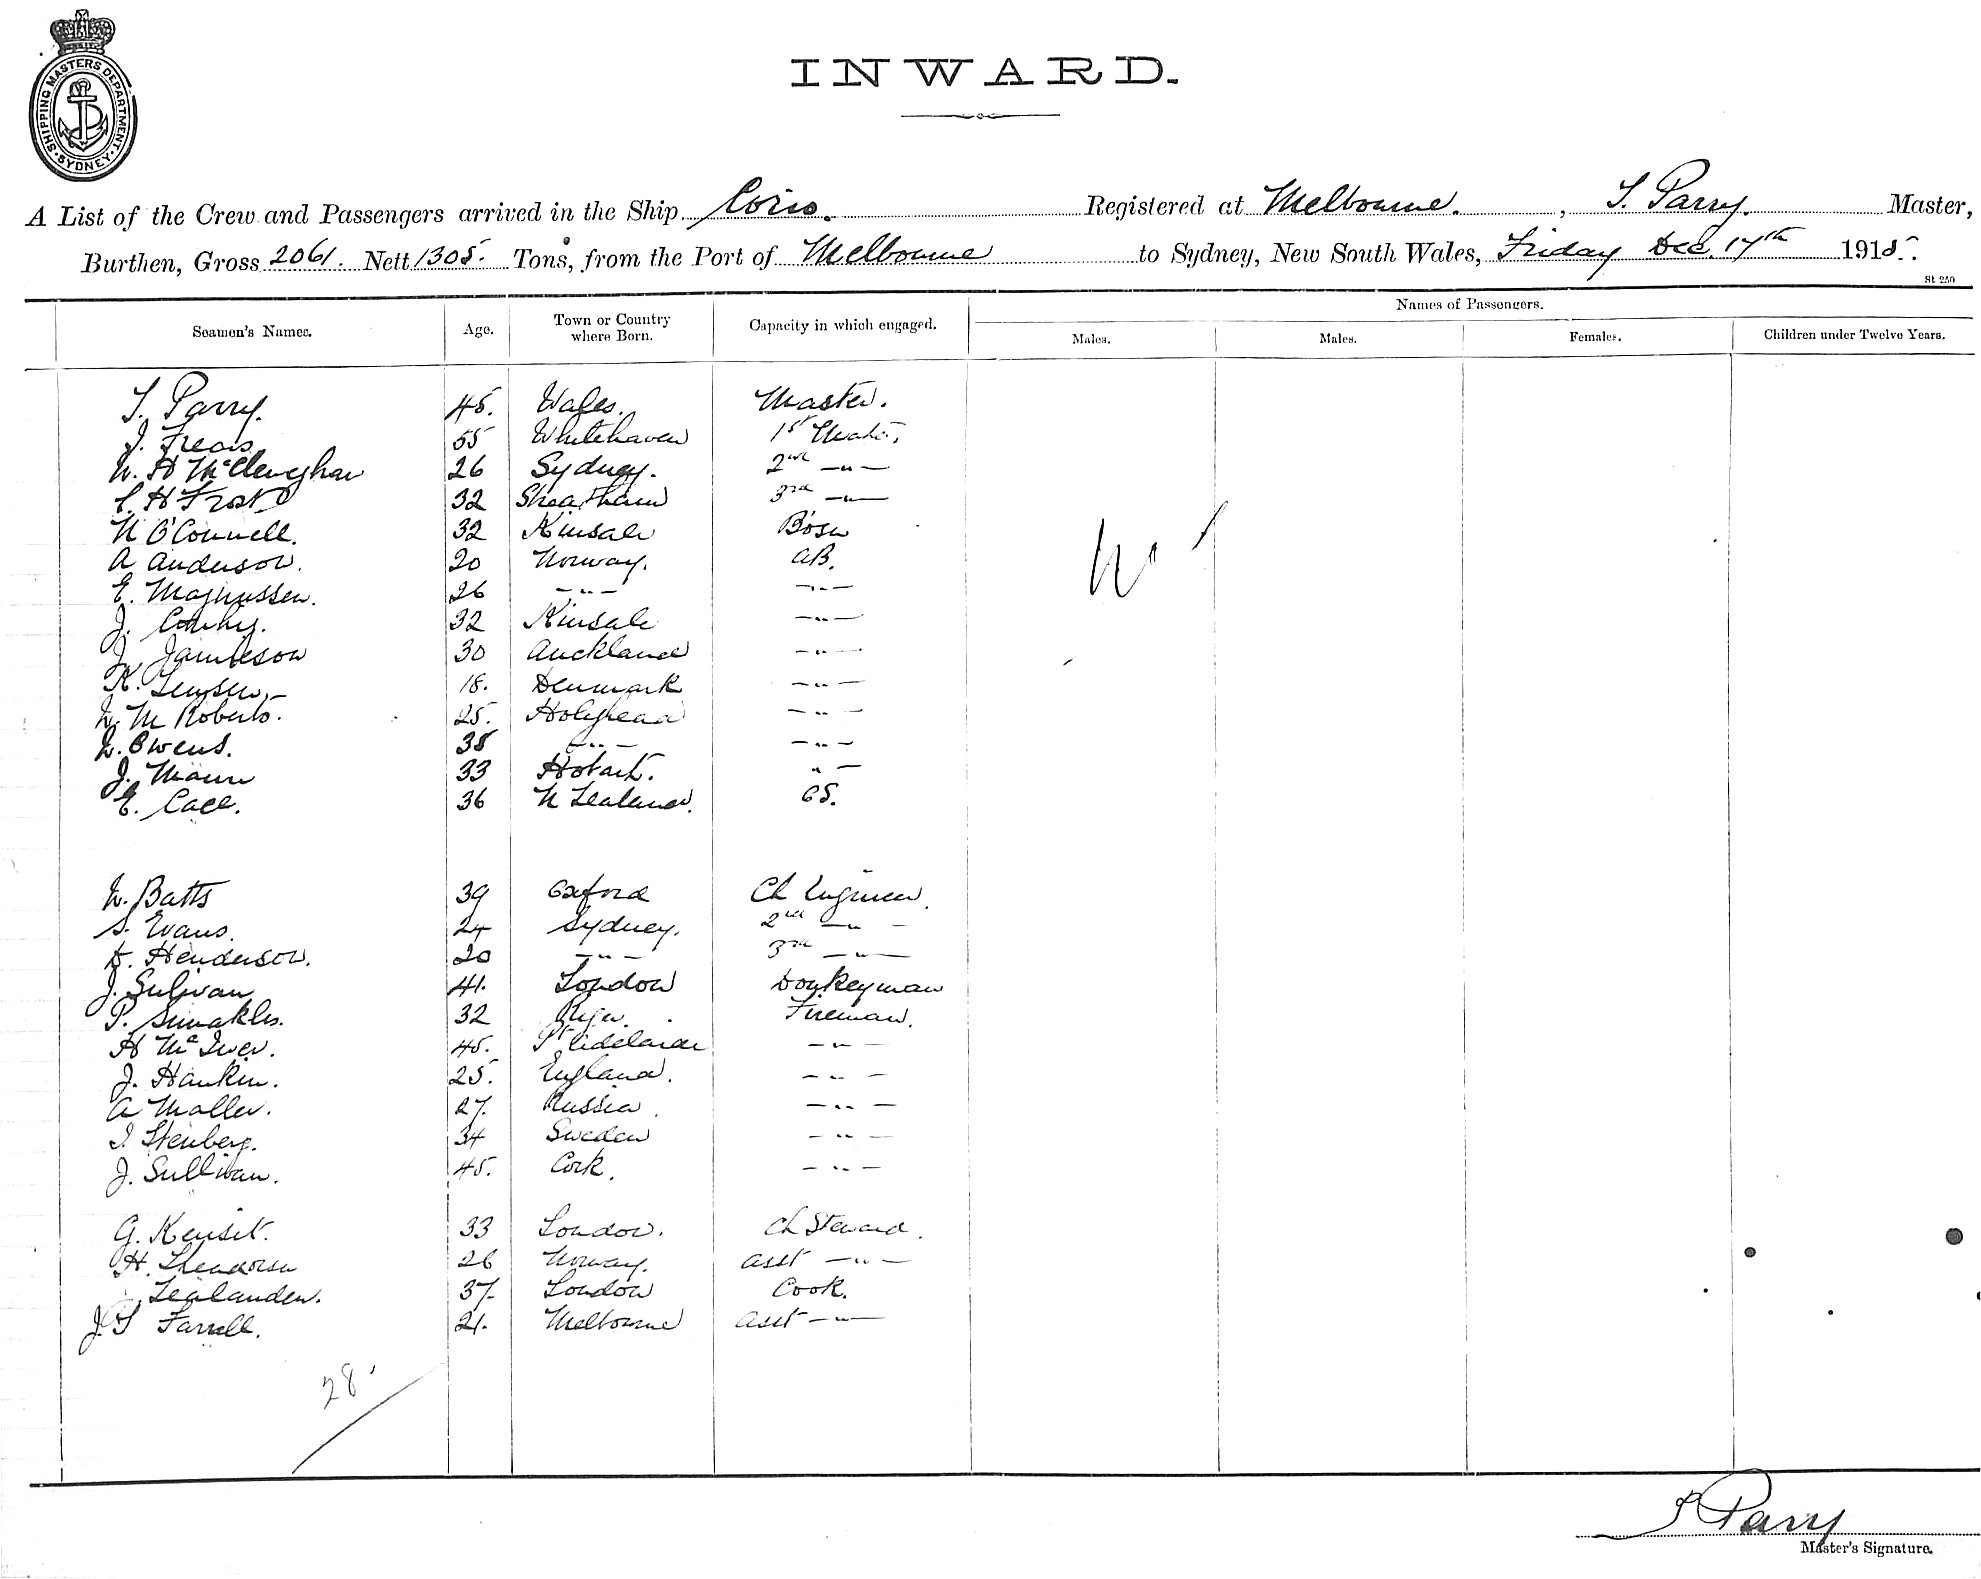 SHIPPING MASTERS DEPARTMENT. SYDNEY
INWARD.
A List of the Crew and Passengers arrived in the Ship Corio. Registered at Melbourne. , T. Parry. Master,
Burthen, Gross 2061. Nett 1305. Tons, from the Port of Melbourne to Sydney, New South Wales, Friday Dec. 17th 1915.
St 250
Names of Passengers.
Seamen's Names. Age. Town or Country where Born. Capacity in which engaged. Males. Males. Females. Children under Twelve Years.
T. Parry. 45. Wales. Master.
J. Frears 55 Whitehaven 1st Mate.
W. H McClenghan 26 Sydney. 2nd —"—
H Frost 32 3rd —"—
N O'Connell. 32 Kinsale Bosn
A Anderson. 20 Norway. AB.
E. Magnussen. 26 —"— —"—
J. 32 Kinsale —"—
J. Jamieson 30 Auckland —"—
K. Jensen 18. Denmark —"—
W. M Roberts. 25. Holyhead —"—
W. Owens. 38 —"— —"—
J. Mann 33 Hobart. " —
E. Call. 36 N Zealand. OS.
W. Batts 39 Oxford Ch Engineer.
S. Evans. 24 Sydney. 2nd —"—
D. Henderson. 20 —"— 3rd —"—
J. Sulivan 41. London Donkeyman
P. 32 Riga. Fireman.
H McIver. 45. Pt Adelaide —"—
J. Hankin. 25. England. —"—
A Moller. 27. Russia. —"—
I Stenberg. 34 Sweden —"—
J. Sullivan. 45. Cork. —"—
G. Kensit. 33 London. Ch Steward.
H. 26 Norway. Asst —"—
Zealanden. 37. London Cook.
J. T Farrell. 21. Melbourne Asst —"—
28
T Parry
Master's Signature.